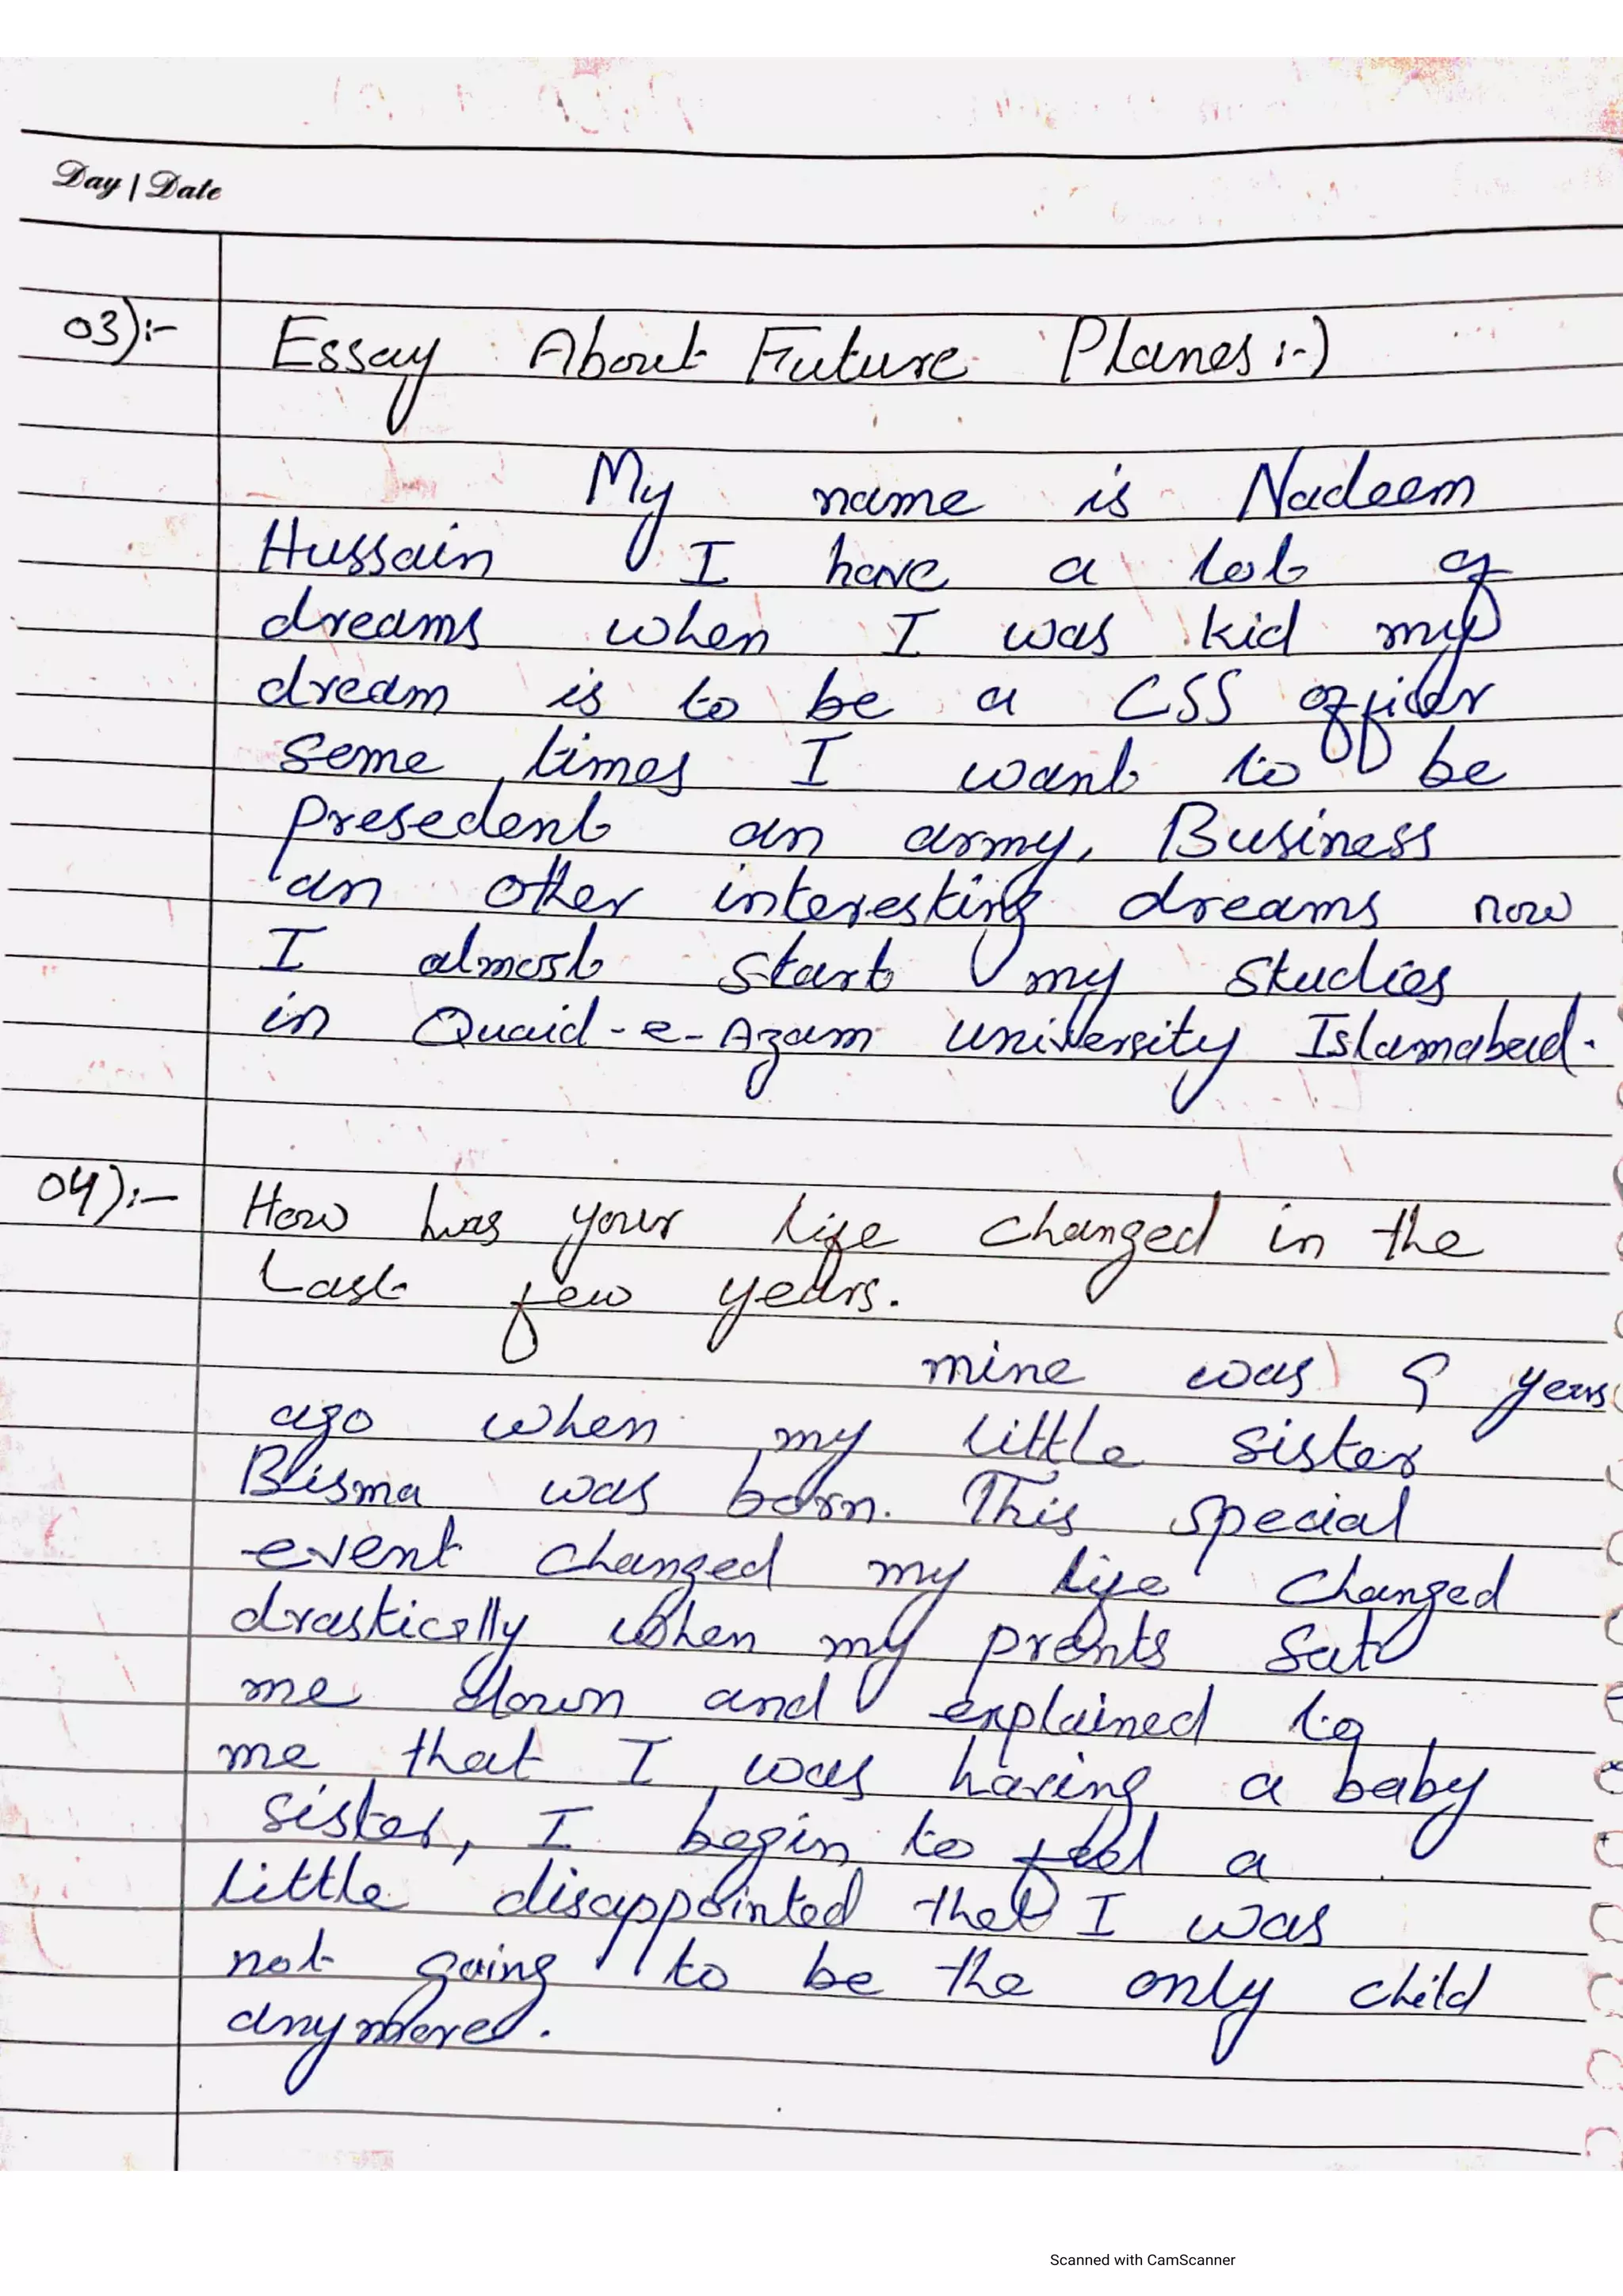 Day | Date
03):- Essay About Future Planes :-)
My name is Nadeem
Hussain I have a lot of
dreams when I was kid my
dream is to be a CSS officer
Some times I want to be
presedent an army, Business
an other interesting dreams now
I almost start my studies
in Quaid-e-Azam university Islamabad.
04):- How has your life changed in the
Last few years.
mine was 9 years
ago when my little sister
Bisma was born. This special
event changed my life changed
drastically when my prents sat
me down and explained to
me that I was having a baby
sister, I begin to feel a
little disappointed that I was
not going to be the only child
anymore.
Scanned with CamScanner